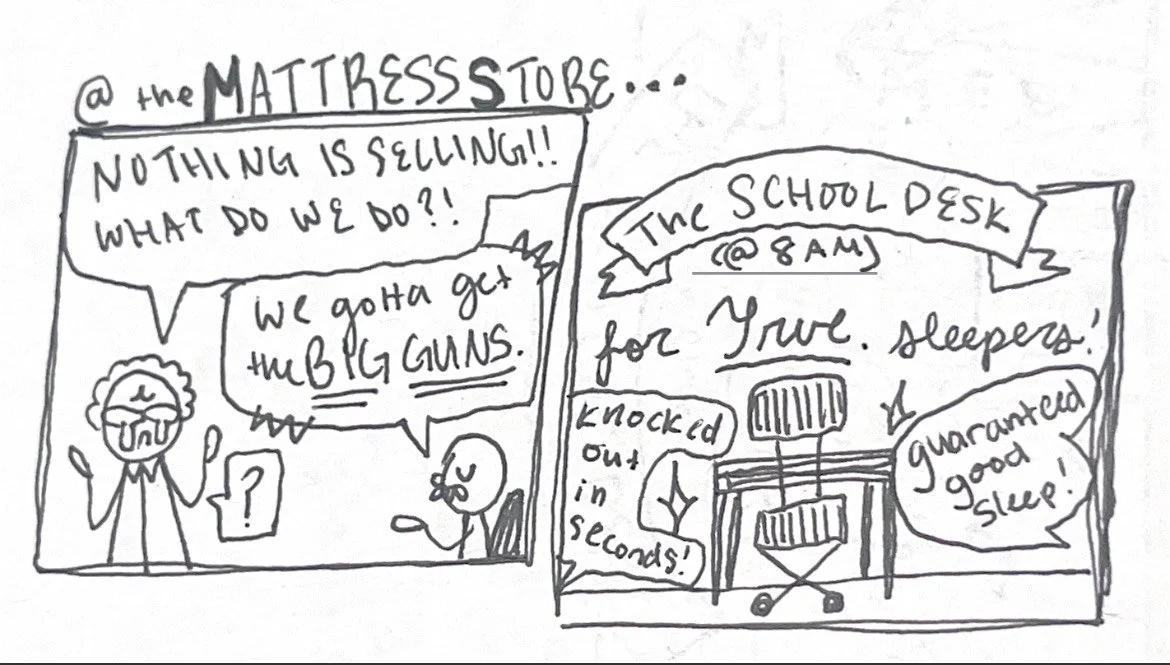 @ the MATTRESS STORE...
NOTHING IS SELLING!!
WHAT DO WE DO?!
We gotta get
the BIG GUNS.
?
The SCHOOL DESK
(@ 8 AM)
for True. sleepers!
Knocked
out
in
seconds!
guaranteed
good
sleep!